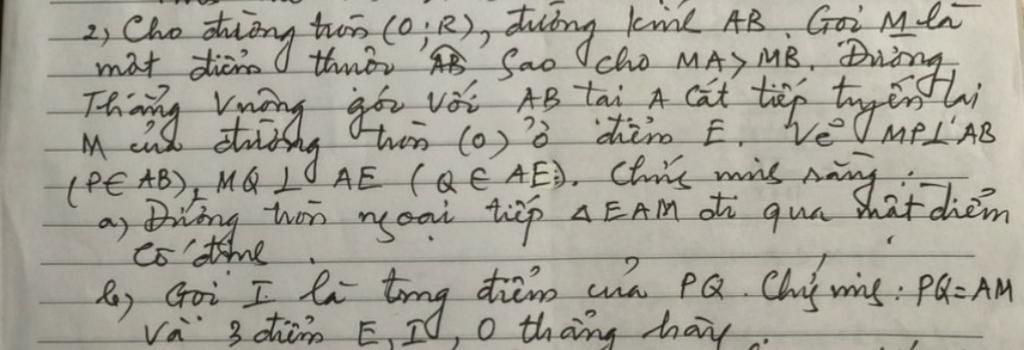 2, Cho đường tròn (O;R), đường kính AB. Gọi M là
một điểm thuộc AB sao cho MA > MB. Đường
Thẳng vuông góc với AB tại A cắt tiếp tuyến tại
M của đường tròn (O) ở điểm E. Vẽ MP⊥AB
(P∈AB), MQ ⊥ AE (Q ∈ AE). Chứng minh rằng:
a, Đường tròn ngoại tiếp ΔEAM đi qua một điểm
cố định.
b, Gọi I là trung điểm của PQ. Chứng minh: PQ=AM
và 3 điểm E, I, O thẳng hàng